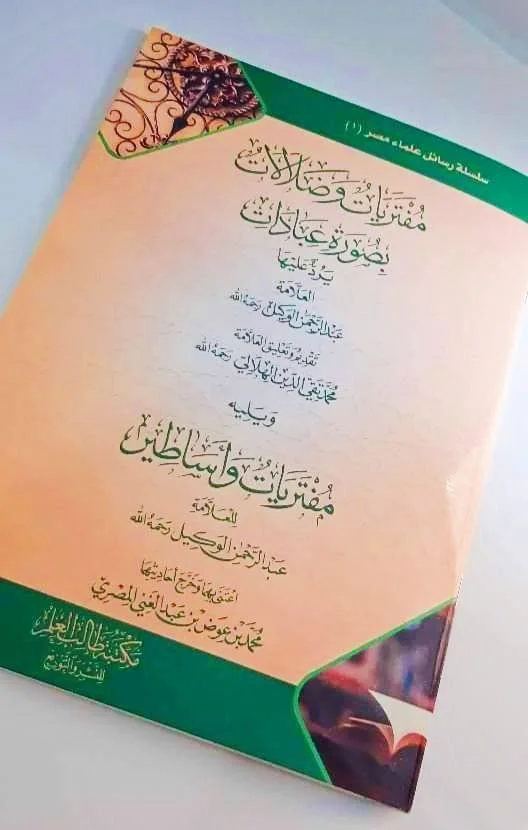 سلسلة رسائل علماء مصر (١)
مُفْتَرَيَاتٌ وَضَلَالَاتٌ
بِصُورَةِ عِبَادَاتٍ
يَرُدُّ عَلَيْهَا
العَلَّامَة
عَبْدُ الرَّحْمَنِ الوَكِيل رَحِمَهُ الله
تَقْدِيمُ وَتَعْلِيقُ العَلَّامَة
مُحَمَّد تَقِيّ الدِّين الهِلَالِي رَحِمَهُ الله
وَيَلِيهِ
مُفْتَرَيَاتٌ وَأَسَاطِيرُ
لِلْعَلَّامَة
عَبْدُ الرَّحْمَنِ الوَكِيل رَحِمَهُ الله
اعْتَنَى بِهَا وَخَرَّجَ أَحَادِيثَهَا
مُحَمَّدُ بْنُ عَوَض بْن عَبْدِ الغَنِيِّ المِصْرِيّ
مكتبة طالب العلم
للنشر والتوزيع